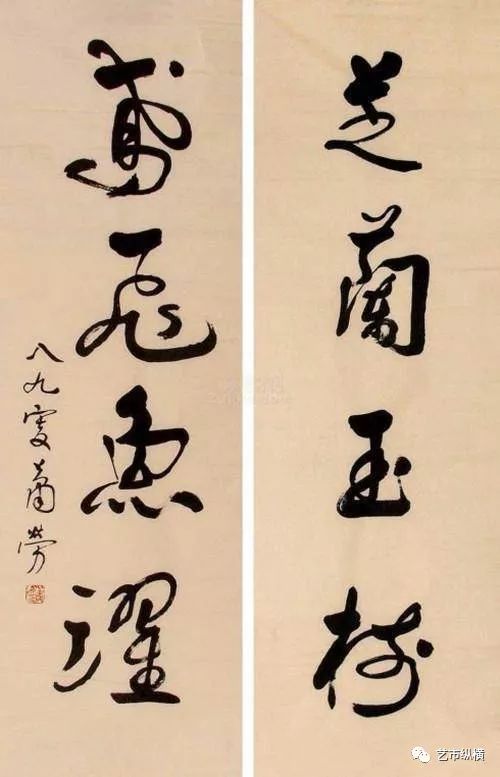 芝蘭玉樹
鳶飛魚躍
八九叟蕭勞
艺市纵横